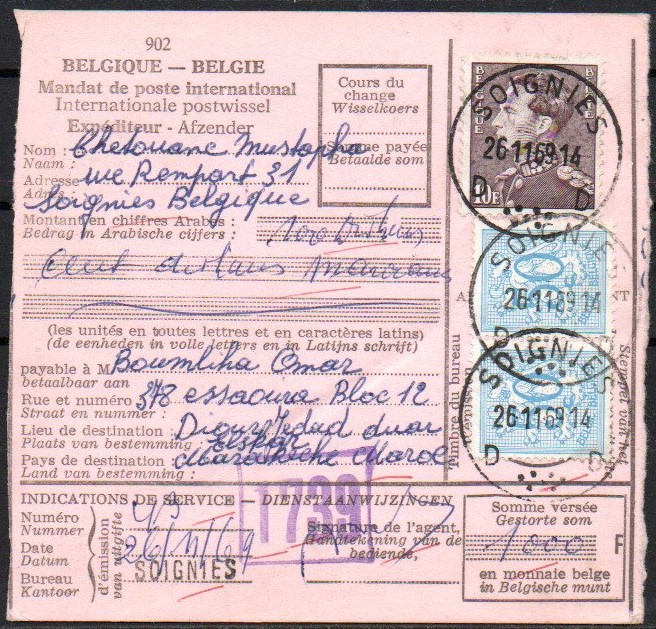 902
BELGIQUE — BELGIE
Mandat de poste international
Internationale postwissel
Expéditeur - Afzender
Nom : Chetouane Mustapha
Naam :
Adresse rue Rempart 31
Adres :
Soignies Belgique
Montant en chiffres Arabes : 1000 Dirhams
Bedrag in Arabische cijfers :
Cent dirhams marocains
(les unités en toutes lettres et en caractères latins)
(de eenheden in volle letters en in Latijns schrift)
payable à M Boumliha Omar
betaalbaar aan
Rue et numéro : 378 essaoura Bloc 12
Straat en nummer :
Lieu de destination : Diour Jedad duar
Plaats van bestemming : Elskar
Pays de destination : Marakeche Maroc
Land van bestemming :
Cours du change
Wisselkoers
Somme payée
Betaalde som
BELGIE
BELGIQUE
10F
SOIGNIES
26 11 69 14
D D
50
SOIGNIES
26 11 69 14
D
50
SOIGNIES
26 11 69 14
D D
Timbre du bureau
Stempel van het
INDICATIONS DE SERVICE — DIENSTAANWIJZINGEN
Numéro
Nummer
Date
Datum
26/11/69
Bureau
Kantoor
SOIGNIES
d'émission
van uitgifte
1739
Signature de l'agent,
Handtekening van de
bediende,
Somme versée
Gestorte som
1000 F
en monnaie belge
in Belgische munt